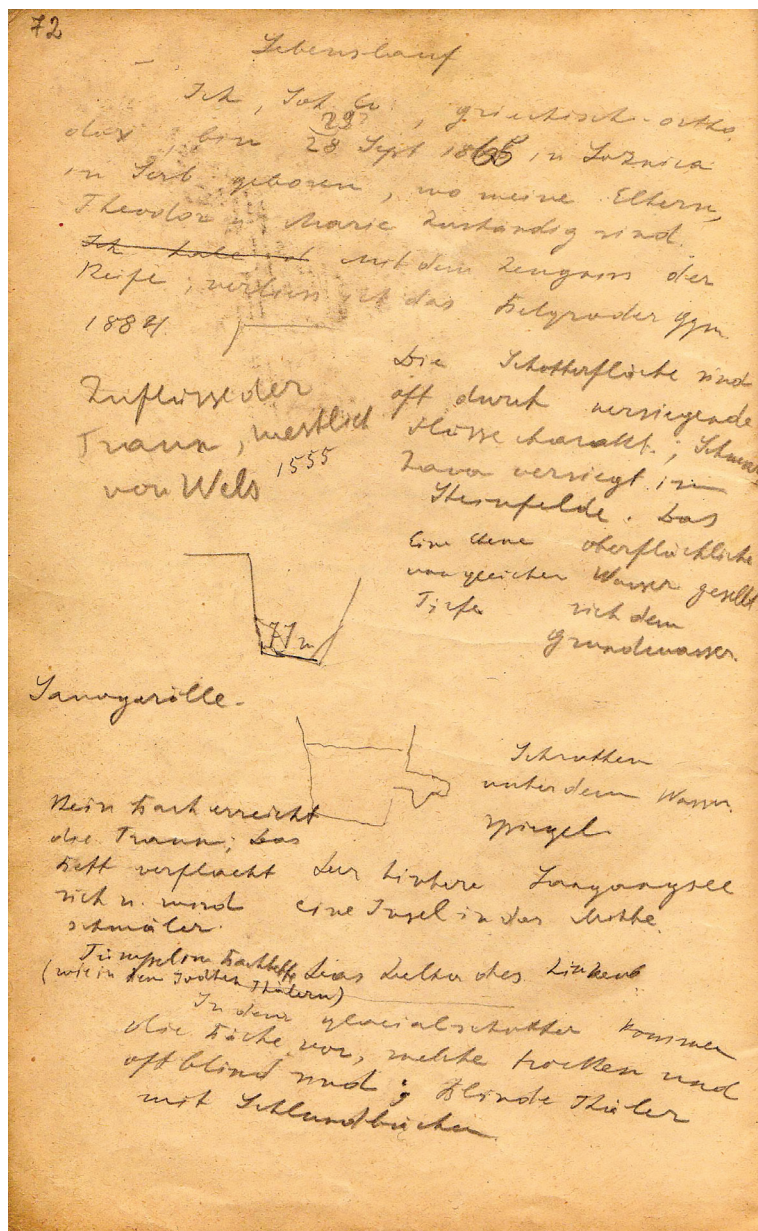 72
Lebenslauf
Ich, Joh. Cv , griechisch-ortho
dox, bin 28 Sept 1865 in Loznica
in Serb. geboren, wo meine Eltern,
Theodor u. Marie zuständig sind.
Mit dem Zeugniss der
Reife, verliess ich das Belgrader Gym
1884.
Zuflüsse der
Traun, westlich
von Wels
1555
Die Schotterfläche sind
oft durch versiegende
Flüsse charakt.; Schwar
zava versiegt im
Steinfelde. Das
oberflächliche
Wasser gesellt
sich dem
Grundwasser.
Eine
von gleicher
Tiefe
77m
Schratten
unter dem Wasser
spiegel.
Kein Bach erreicht
die Traun; Das
Bett verflacht
sich u. wird
schmäler.
Der hintere Langangsee
eine Insel in das Mitte.
Tümpel im Bachbette
(wie in den Thälern)
Das Delta des
In dem glacialschotter kommen
die Bäche vor, welche trocken und
oft blind sind; Blinde Thäler
mit Schlundbächen